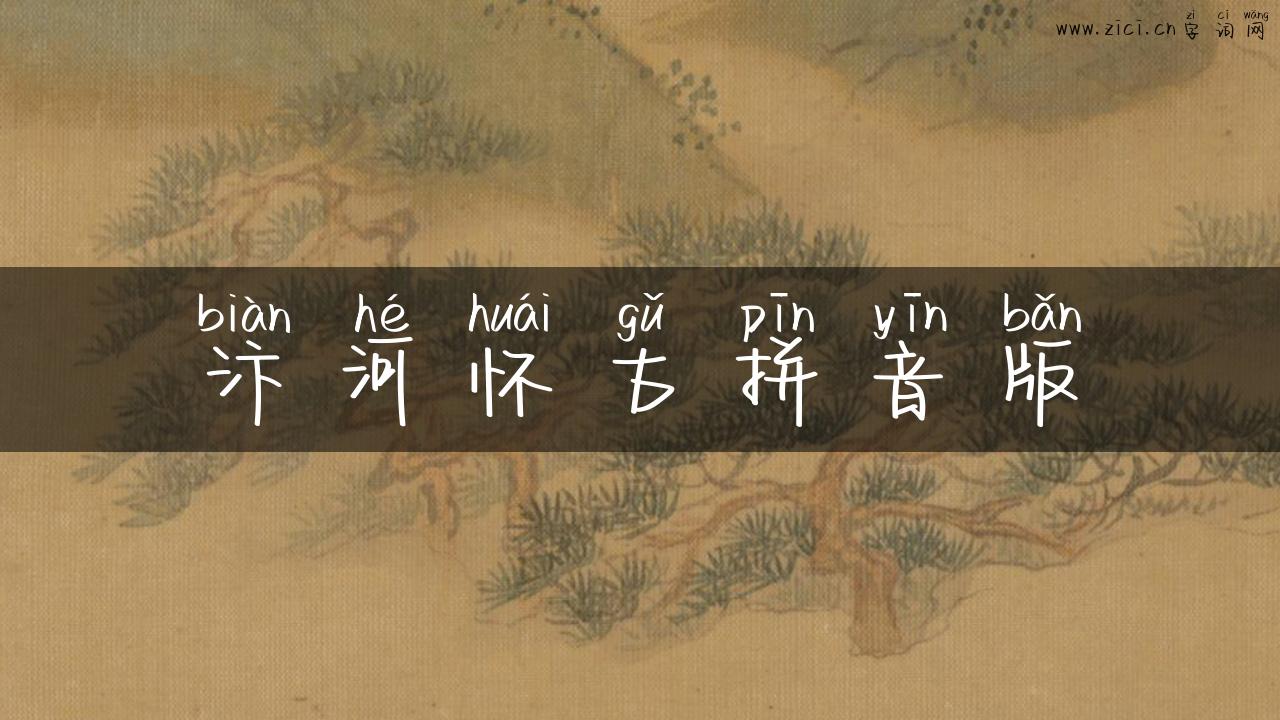 zì cí wǎng
www.zici.cn 字词网
biàn hé huái gǔ pīn yīn bǎn
汴河怀古拼音版